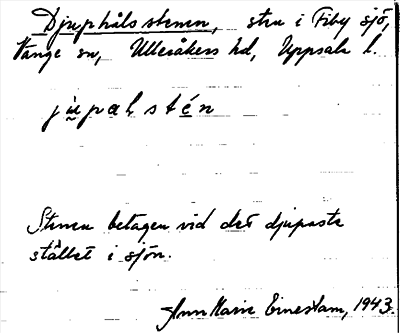 Djuphålsstenen, sten i Fiby sjö,
Vänge sn, Ulleråkers hd, Uppsala l.
jupahstén
Stenen belägen vid det djupaste
stället i sjön.
Ann Marie Einestam, 1943.